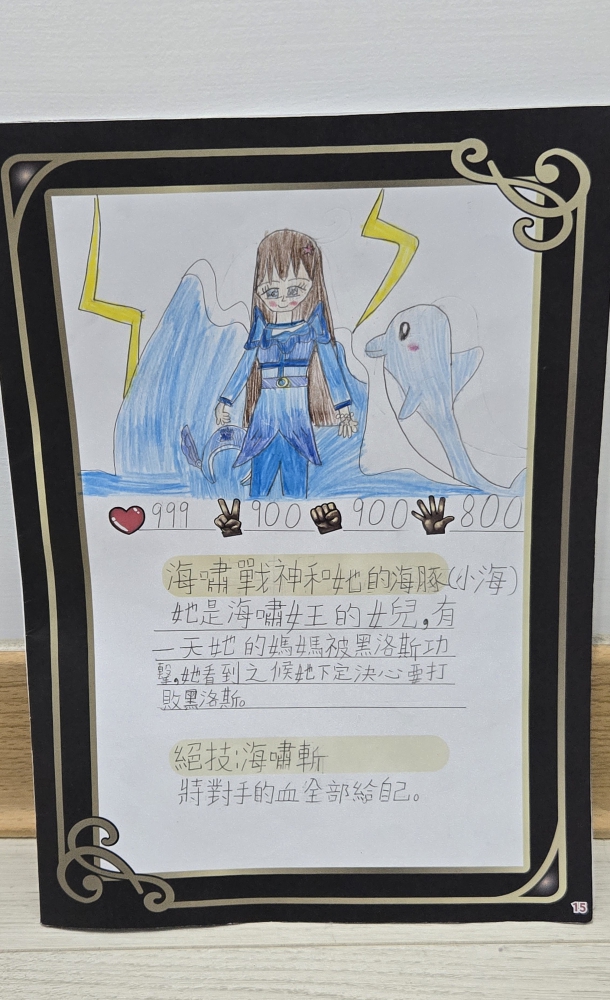 999 900 900 800
海嘯戰神和她的海豚(小海)
她是海嘯女王的女兒,有
一天她的媽媽被黑洛斯功
擊,她看到之候她下定決心要打
敗黑洛斯。
絕技:海嘯斬
將對手的血全部給自己。
15